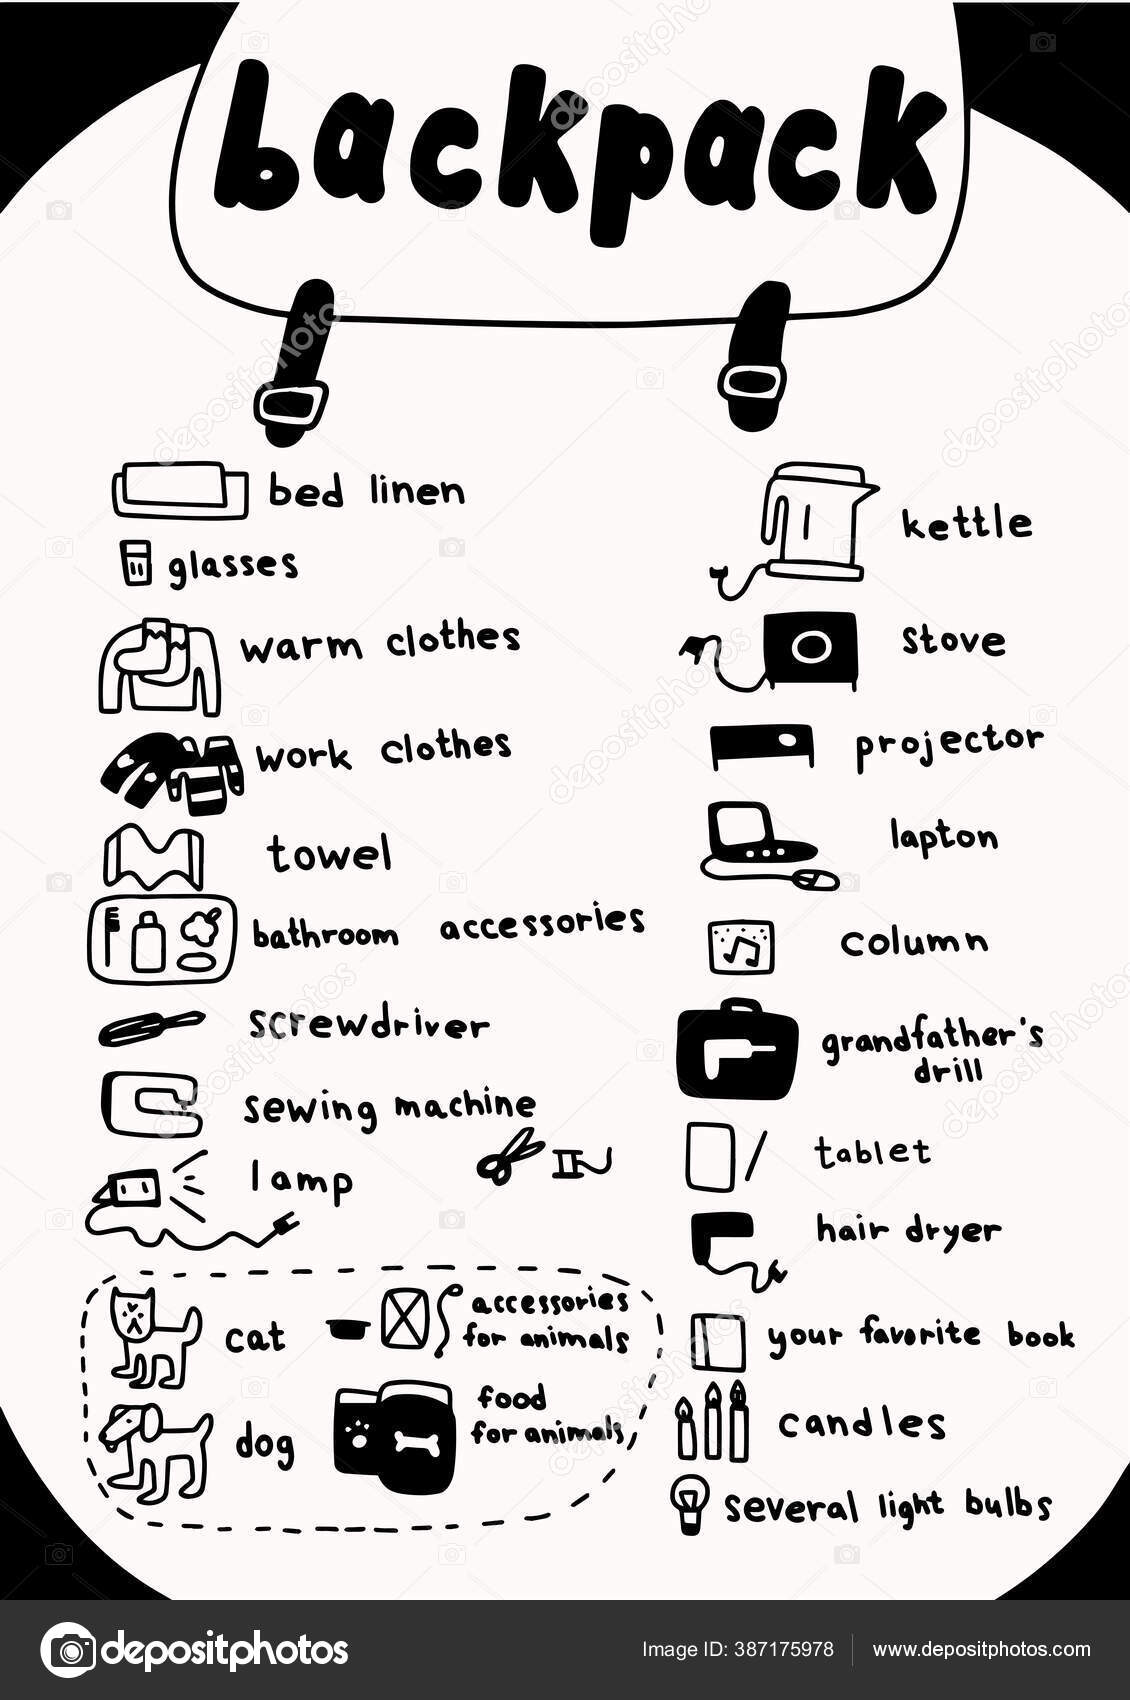 backpack
bed linen
glasses
warm clothes
work clothes
towel
bathroom accessories
screwdriver
sewing machine
lamp
cat
accessories
for animals
dog
food
for animals
kettle
stove
projector
lapton
column
grandfather's
drill
tablet
hair dryer
your favorite book
candles
several light bulbs
depositphotos
Image ID: 387175978
www.depositphotos.com